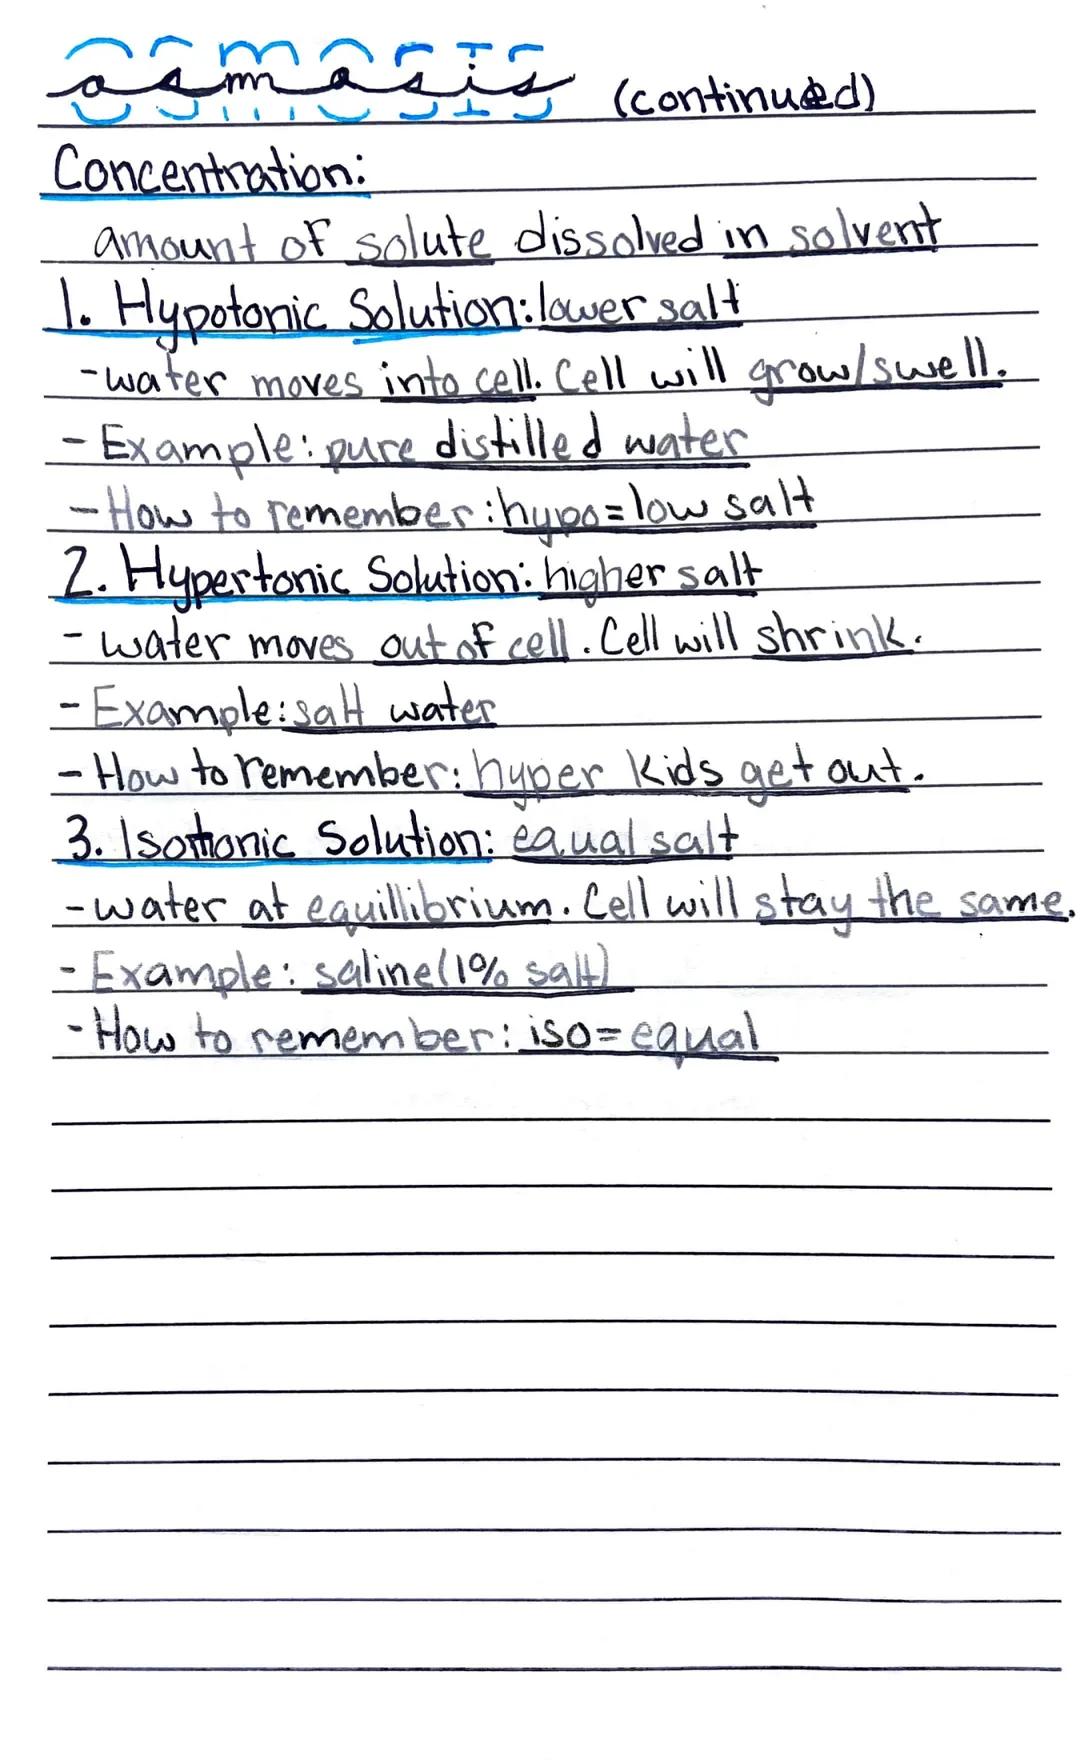 osmosis (continued)
Concentration:
amount of solute dissolved in solvent
1. Hypotonic Solution: lower salt
- water moves into cell. Cell will grow/swell.
- Example: pure distilled water
- How to remember: hypo = low salt
2. Hypertonic Solution: higher salt
- water moves out of cell. Cell will shrink.
- Example: salt water
- How to remember: hyper kids get out.
3. Isotonic Solution: equal salt
- water at equillibrium. Cell will stay the same.
- Example: saline (1% salt)
- How to remember: iso = equal